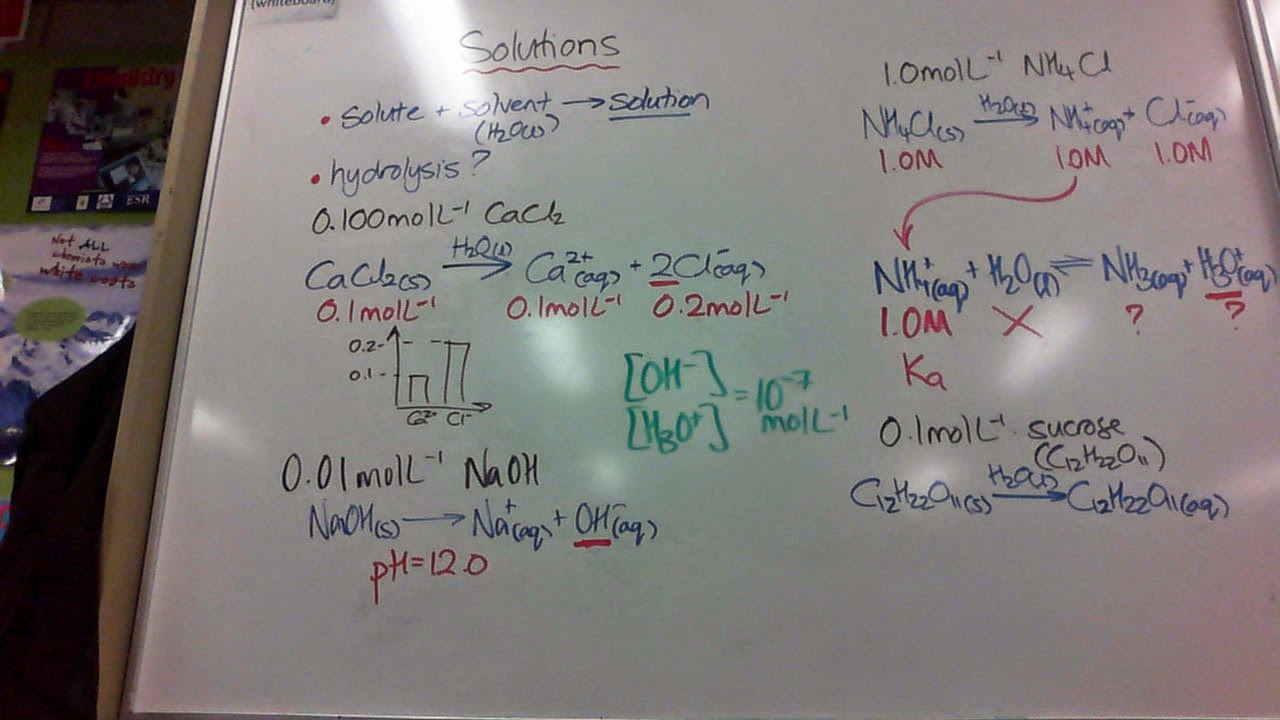 (whiteboard)
Solutions
• solute + solvent → solution
(H₂O(l))
• hydrolysis?
0.100molL⁻¹ CaCl₂
H₂O(l)
CaCl₂(s) → Ca²⁺(aq) + 2Cl⁻(aq)
0.1molL⁻¹ 0.1molL⁻¹ 0.2molL⁻¹
0.2
0.1
Ca²⁺ Cl⁻
[OH⁻]
[H₃O⁺] = 10⁻⁷ molL⁻¹
0.01molL⁻¹ NaOH
NaOH(s) → Na⁺(aq) + OH⁻(aq)
pH=12.0
1.0molL⁻¹ NH₄Cl
H₂O(l)
NH₄Cl(s) → NH₄⁺(aq) + Cl⁻(aq)
1.0M 1.0M 1.0M
NH₄⁺(aq) + H₂O(l) ⇌ NH₃(aq) + H₃O⁺(aq)
1.0M X ? ?
Ka
0.1molL⁻¹ sucrose
(C₁₂H₂₂O₁₁)
H₂O(l)
C₁₂H₂₂O₁₁(s) → C₁₂H₂₂O₁₁(aq)
ESR
Not ALL
chemists wear
white coats